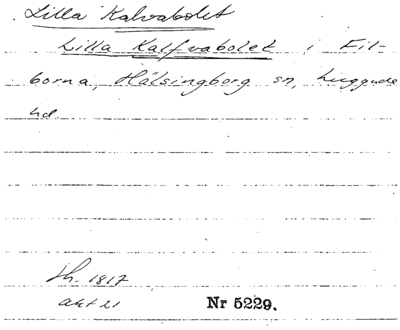 Lilla Kalvabolet
Lilla Kalfvabolet i Fil-
borna, Hälsingborg sn, Luggude
hd.
Sk. 1817
akt 21
Nr 5229.